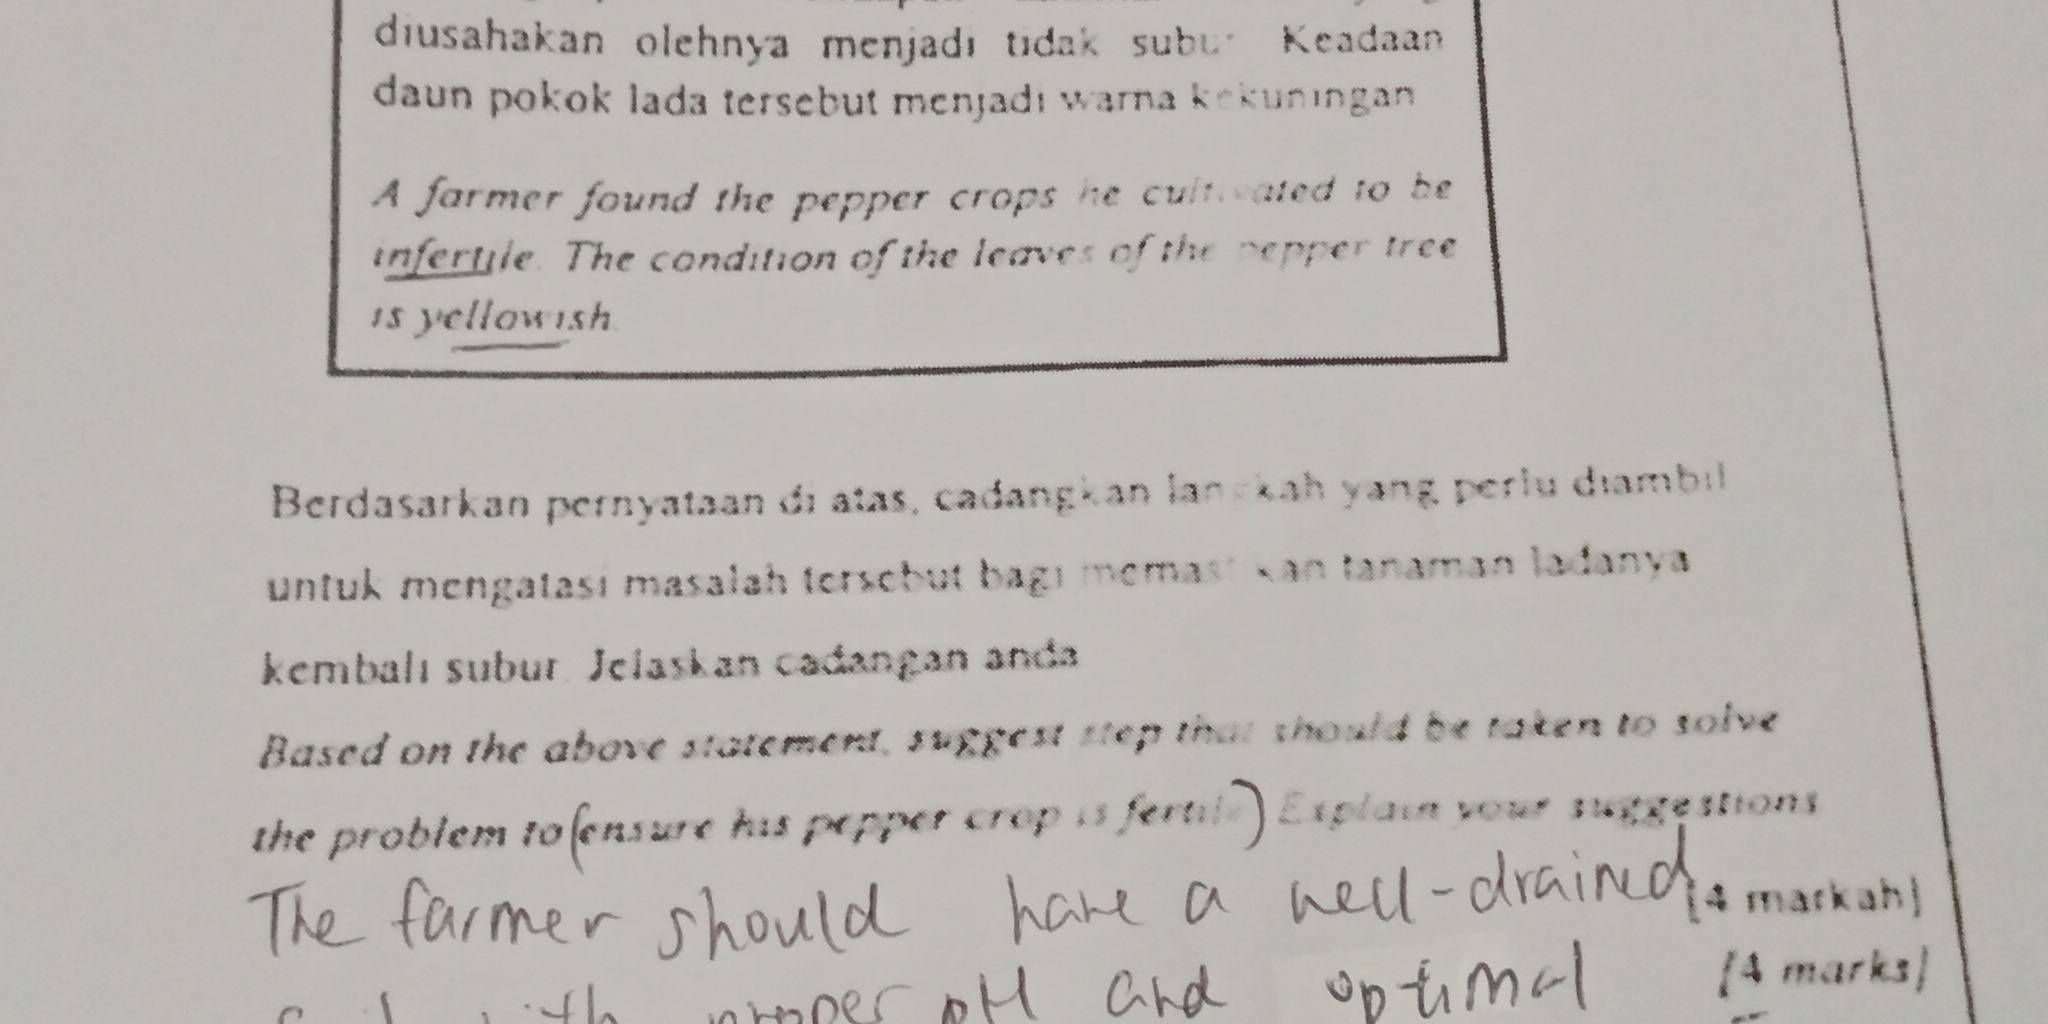 diusahakan olehnya menjadi tidak subur Keadaan
daun pokok lada tersebut menjadi warna kekuningan
A farmer found the pepper crops he cultivated to be
infertile. The condition of the leaves of the pepper tree
is yellowish
Berdasarkan pernyataan di atas, cadangkan langkah yang perlu diambil
untuk mengatasi masalah tersebut bagi memastikan tanaman ladanya
kembali subur Jelaskan cadangan anda
Based on the above statement, suggest step that should be taken to solve
the problem to (ensure his pepper crop is fertile) Explain your suggestions
The farmer should have a well-drained
[4 markah]
with proper pH and optimal
[4 marks]